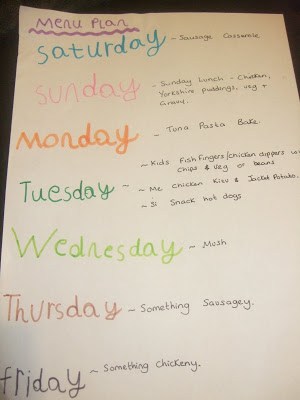 Menu Plan
Saturday ~ Sausage Casserole
Sunday ~ Sunday Lunch - Chicken,
Yorkshire puddings, veg +
Gravy.
Monday ~ Tuna Pasta Bake.
~ Kids Fish Fingers/chicken dippers
chips & veg or beans
Tuesday ~ ~ Me Chicken Kiev & Jacket Potato.
~ Si Snack hot dogs
Wednesday ~ Mush
Thursday ~ Something Sausagey.
friday ~ Something Chickeny.